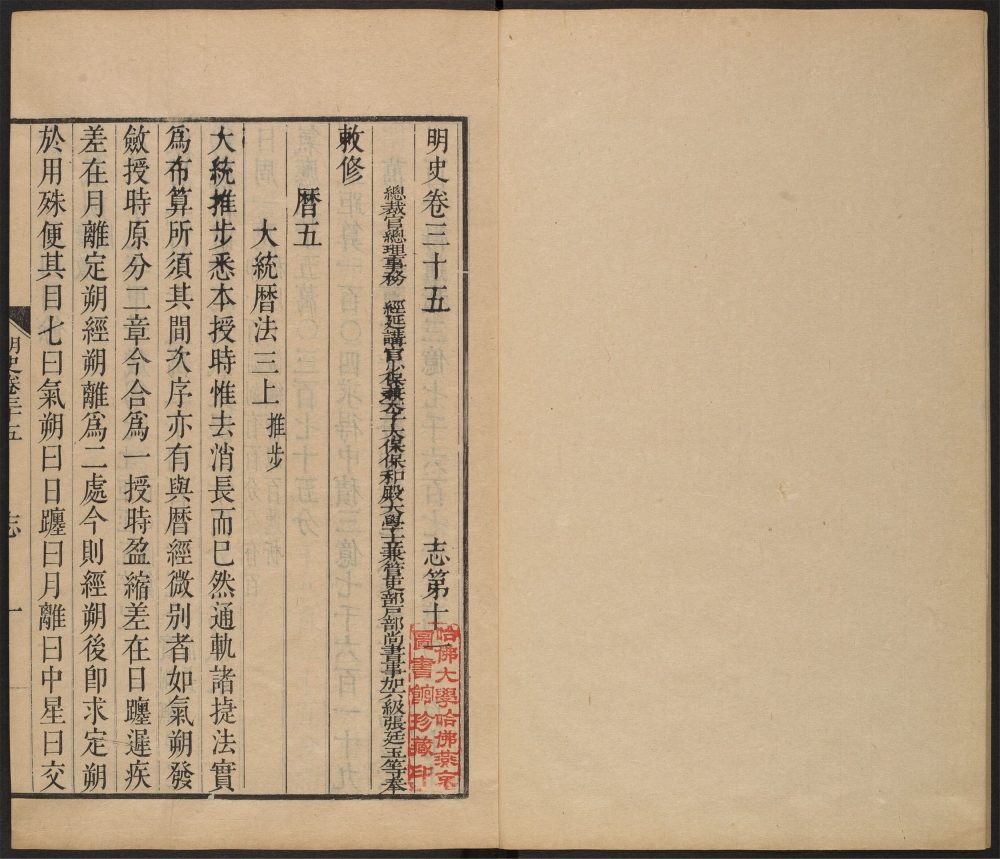 明史卷三十五 志第十一
總裁官總理事務 經筵講官少保兼太子太保保和殿大學士兼管吏部戶部尚書事加六級張廷玉等奉
敕修
曆五
大統曆法三上 推步
大統推步悉本授時惟去消長而已然通軌諸捷法實
爲布算所須其間次序亦有與曆經微別者如氣朔發
斂授時原分二章今合爲一授時盈縮差在日躔遲疾
差在月離定朔經朔離爲二處今則經朔後卽求定朔
於用殊便其目七曰氣朔曰日躔曰月離曰中星曰交
明史卷三十五 志 一
哈佛大學哈佛燕京
圖書館珍藏印